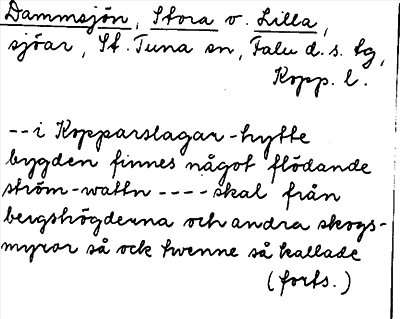 Dammsjön, Stora o. Lilla,
sjöar, St. Tuna sn, Falu d. s. tg,
Kopp. l.
-- i Kopparslagar-hytte
bygden finnes något flödande
ström-wattn ---- skal från
bergshögderna och andra skogs-
myror så ock twenne så kallade
(forts.)